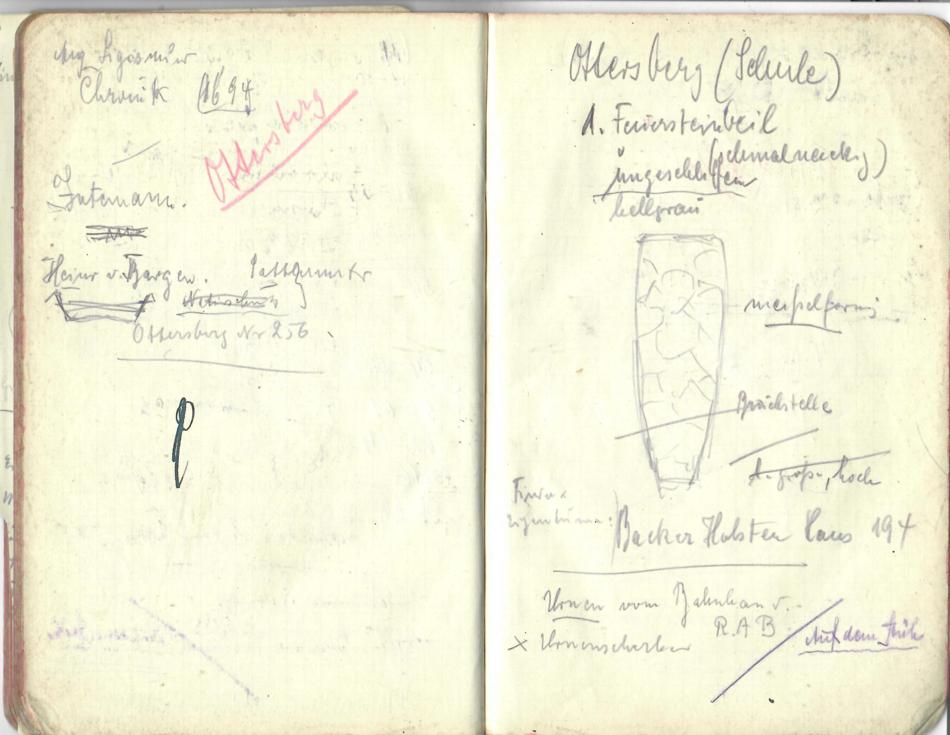 Chronik 1694
Ottersberg
Intemann.
Heinr v. Bargen.
Ottersberg Nr 256.
Ottersberg (Schule)
1. Feuersteinbeil
(schmalnackig)
ungeschliffen
hellgrau
meißelförmig
Bruchstelle
hoch
Finder
Eigentümer:
Backer Holsten Haus 194
Urnen vom Bahnbau
R.A.B
x Urnenscherben
Auf dem